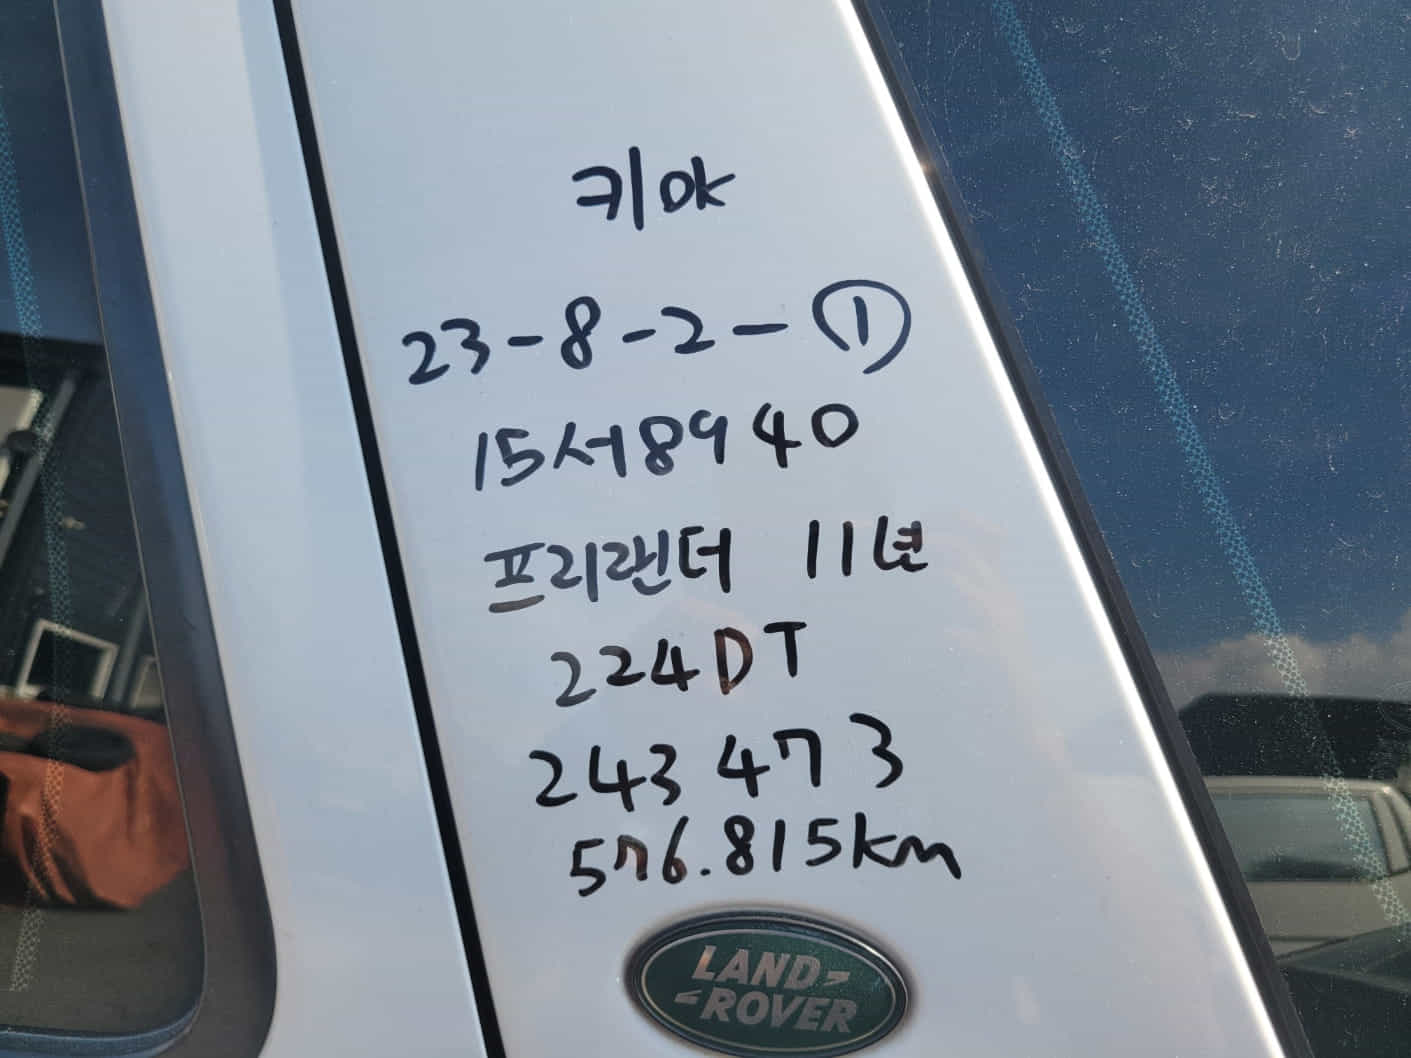 키 ok
23-8-2-①
15서8940
프리랜더 11년
224DT
243473
576.815km
LAND
ROVER